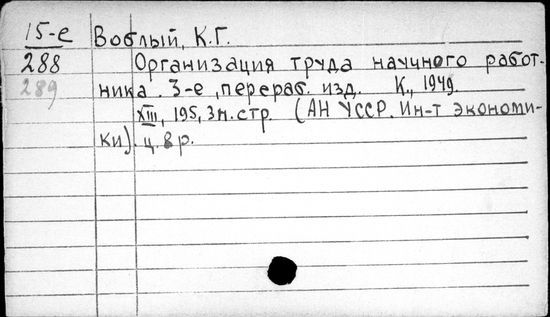 15-е Воблый, К.Г.
288 Организация труда научного работ-
289 ника. 3-е, перераб. изд. К., 1949.
XIII, 195, 3 н. стр. (АН УССР. Ин-т экономи-
ки). ц. 8 р.